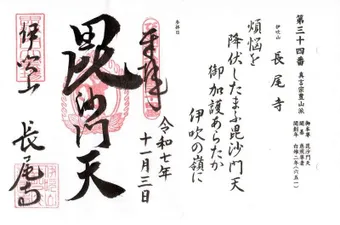 第三十四番 真言宗豊山派
伊吹山 長尾寺
煩悩を
降伏したまふ毘沙門天
御加護あらたか
伊吹の嶺に
奉拝
令和七年
十一月三日
毘沙門天
伊吹山
長尾寺